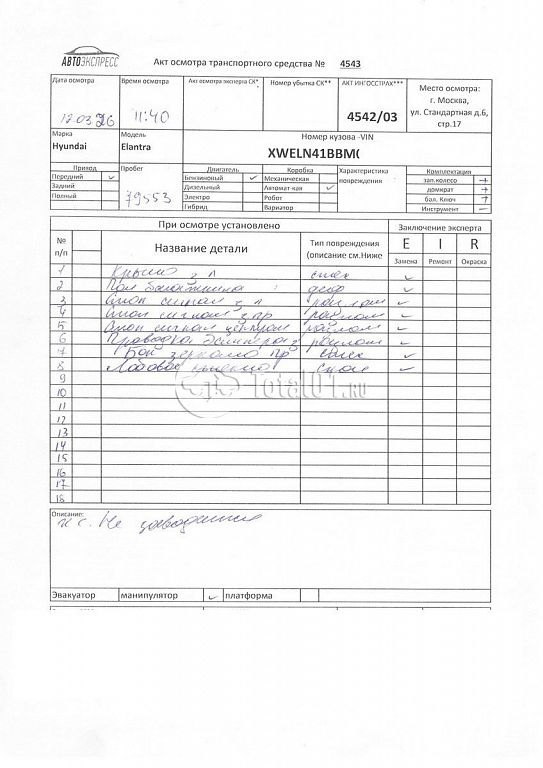 АВТОЭКСПРЕСС
Акт осмотра транспортного средства № 4543
Дата осмотра
Время осмотра
Акт осмотра эксперта СК*
Номер убытка СК**
АКТ ИНГОССТРАХ***
Место осмотра:
г. Москва,
ул. Стандартная д.6,
стр.17
11:40
4542/03
Марка
Модель
Номер кузова -VIN
Hyundai
Elantra
XWELN41BBM
Привод
Пробег
Двигатель
Коробка
Характеристика
повреждения
Комплектация
Передний ✓
Бензиновый ✓
Механическая
зап.колесо +
Задний
Дизельный
Автомат-кая ✓
домкрат +
Полный
79553
Электро
Робот
бал. Ключ +
Гибрид
Вариатор
Инструмент –
При осмотре установлено
Заключение эксперта
№
п/п
Название детали
Тип повреждения
(описание см.Ниже
E I R
Замена Ремонт Окраска
1 з л ✓
2 Пол багажника деф ✓
3 Стоп сигнал з л разлом ✓
4 Стоп сигнал з пр разлом ✓
5 Стоп сигнал разлом ✓
6 Проводка разлом ✓
7 Бок зеркало пр ✓
8 Лобовое скол ✓
9
10
11
12
13
14
15
16
17
18
Total01.ru
Описание:
Не заводится
Эвакуатор
манипулятор
✓ платформа